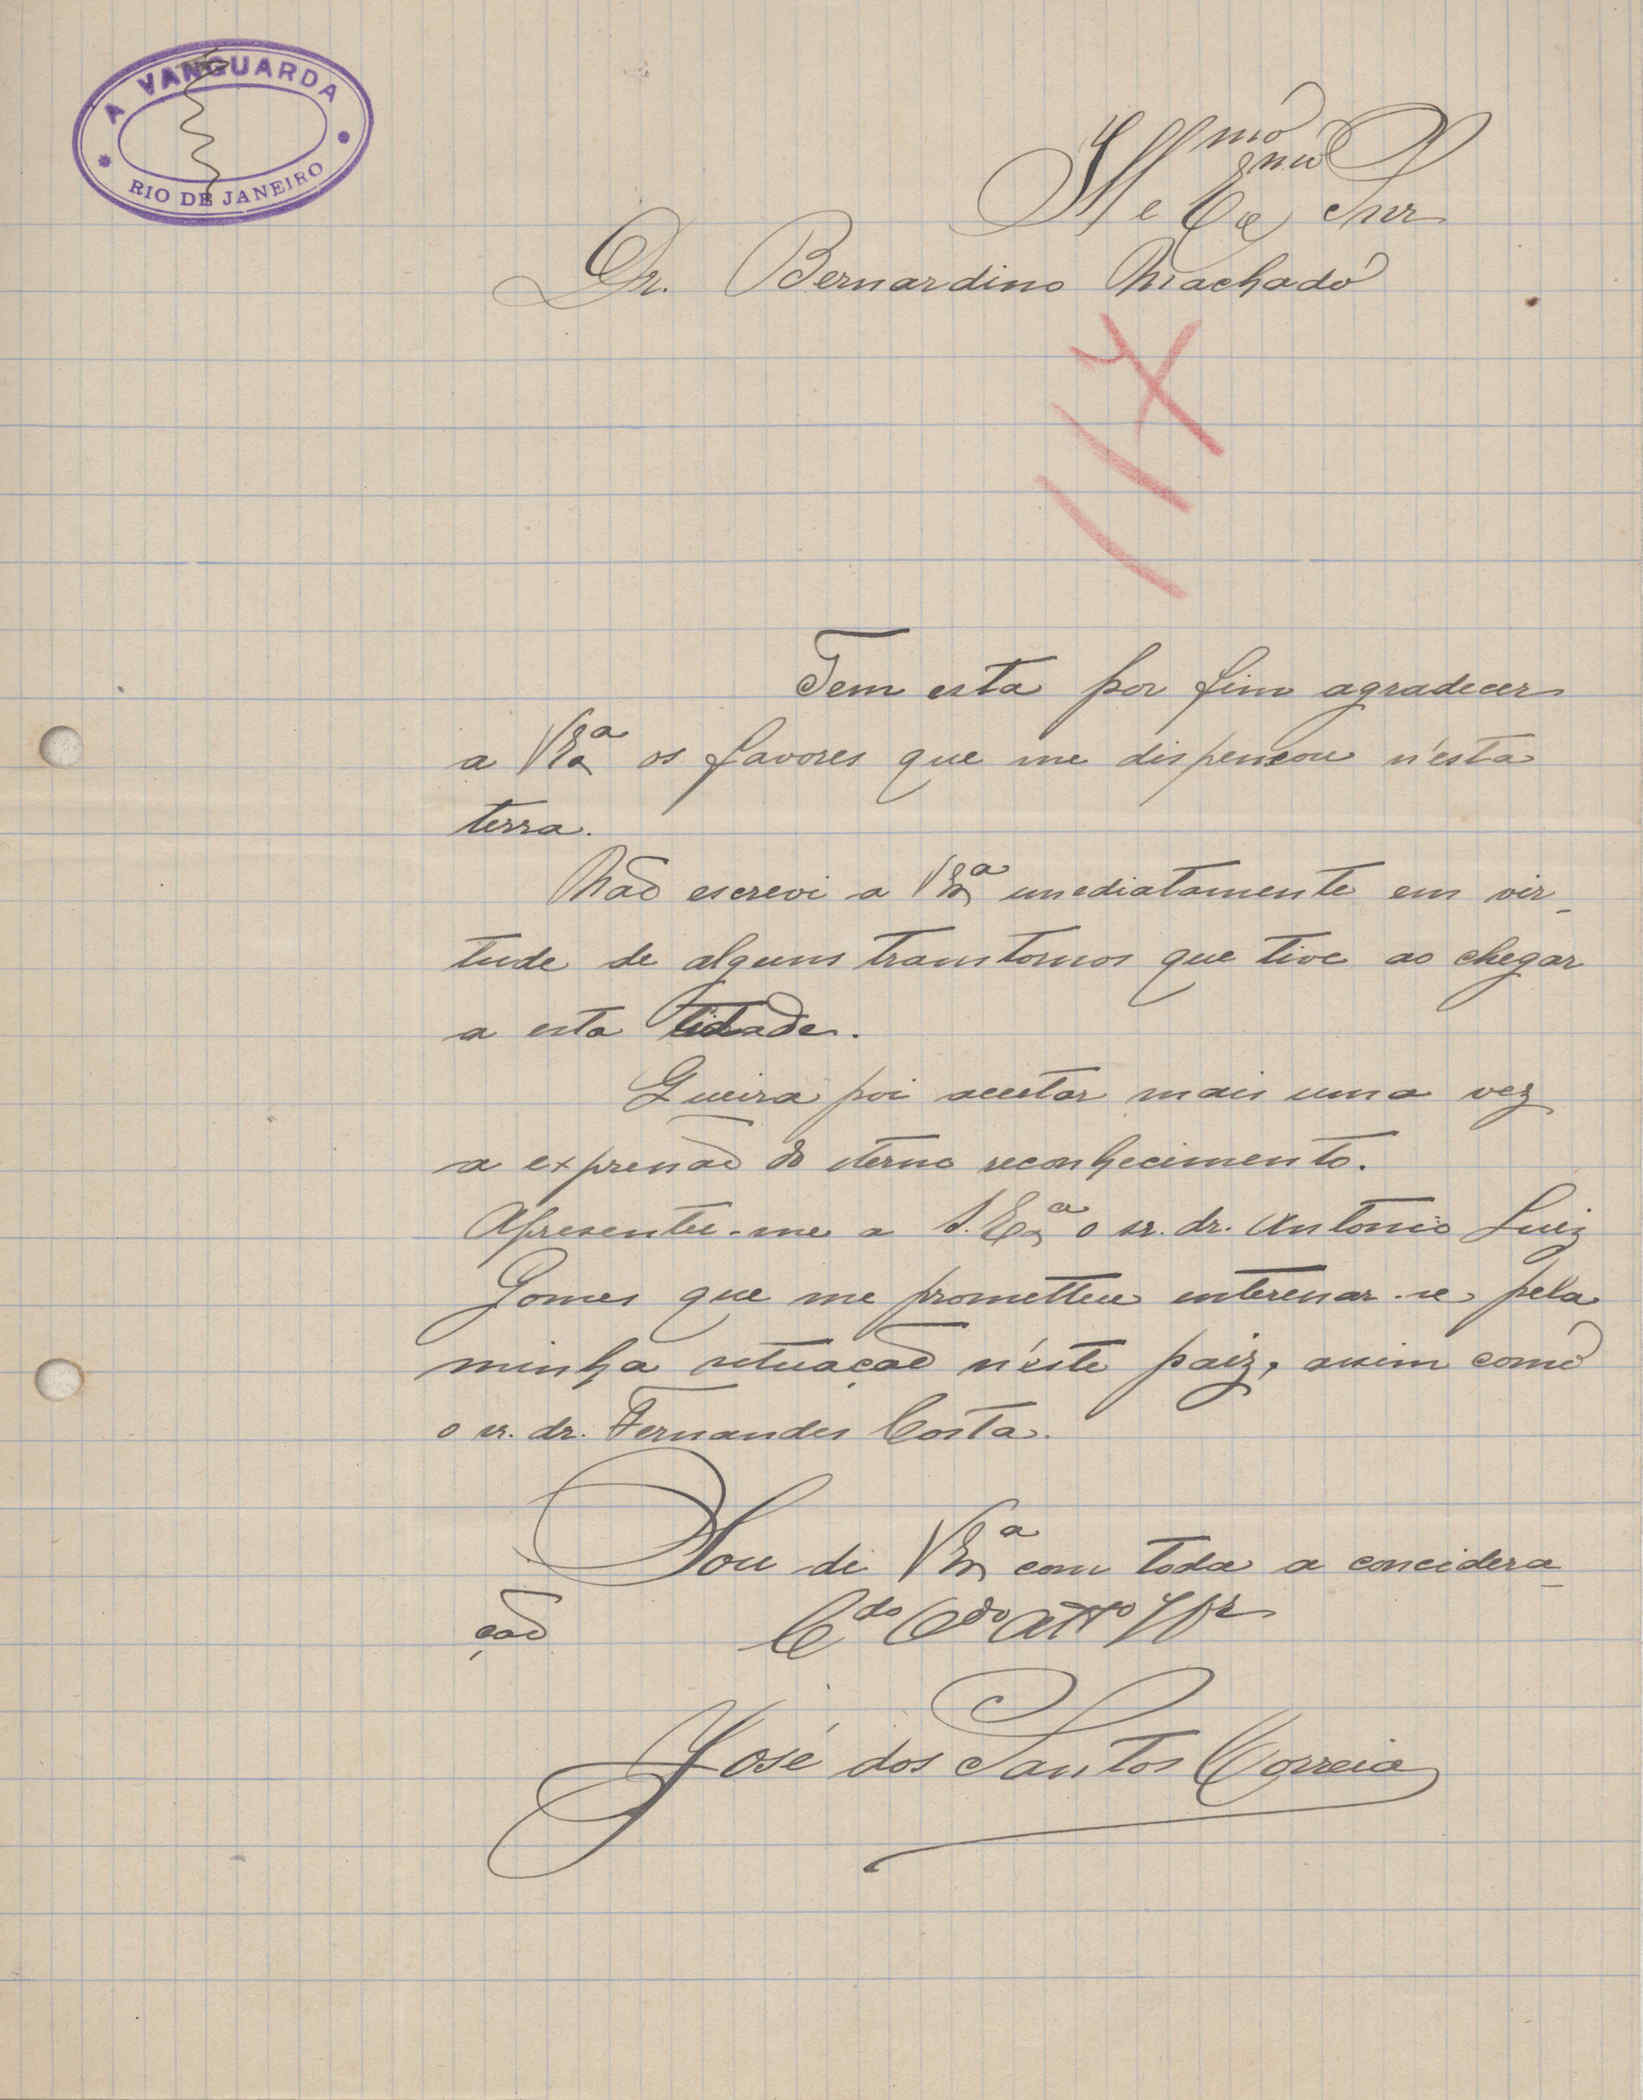 A VANGUARDA
RIO DE JANEIRO
Illmo e Exmo Snr
Dr. Bernardino Machado
117
Tem esta por fim agradecer
a V Exa os favores que me dispensou n'esta
terra.
Não escrevi a V Exa imediatamente em vir-
tude de alguns transtornos que tive ao chegar
a esta cidade.
Queira poi aceitar mais uma vez
a expressão do eterno reconhecimento.
Apresentei-me a S. Exa o sr. dr. Antonio Luiz
Gomes que me prometteu interessar-se pela
minha situação n'este paiz, assim como
o sr. dr. Fernandes Costa.
Sou de V Exa com toda a concidera-
ção
Cdo Odo Atto
José dos Santos Correia